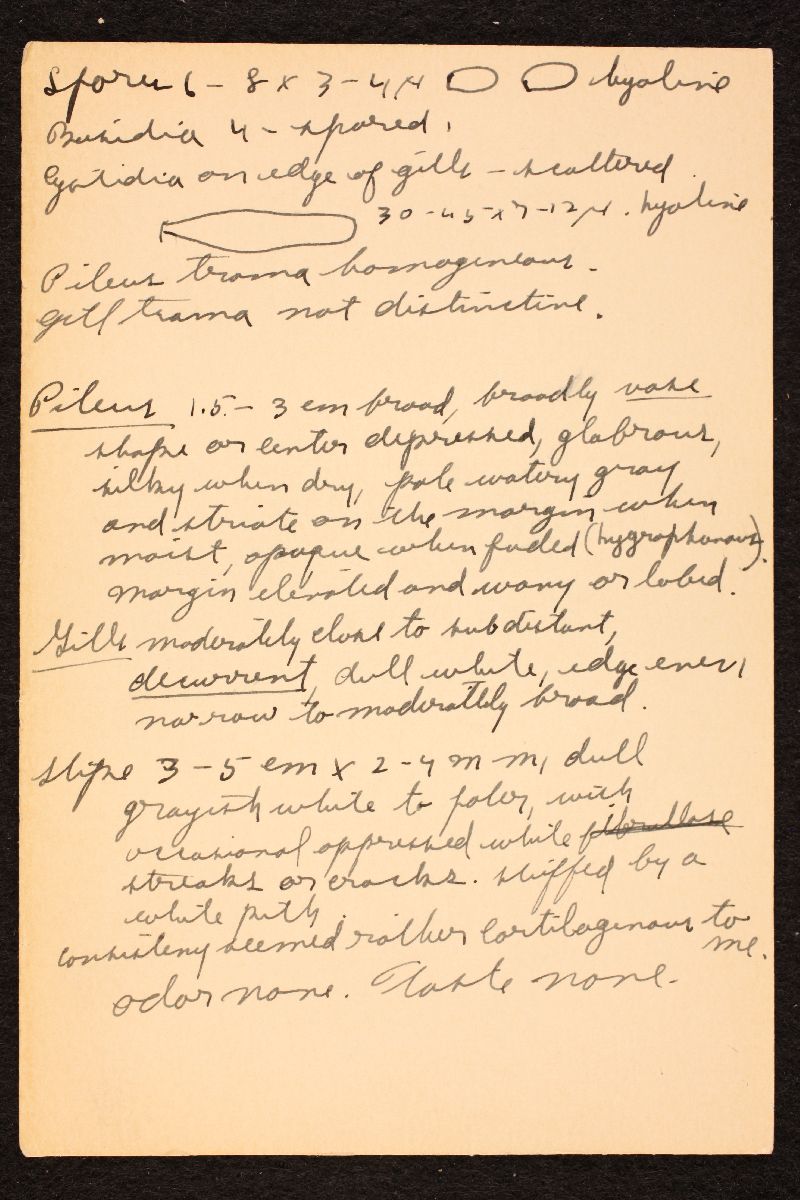 Spores 6-8 x 3-4 µ hyaline
Basidia 4-spored.
Cystidia on edge of gills - scattered
30-45 x 7-12 µ. hyaline
Pileus trama homogeneous.
gill trama not distinctive.
Pileus 1.5-3 cm broad, broadly vase
shape or center depressed, glabrous,
silky when dry, pale watery gray
and striate on the margin when
moist, opaque when faded (hygrophanous).
margin elevated and wavy or lobed.
Gills moderately close to subdistant,
decurrent, dull white, edge even,
narrow to moderately broad.
Stipe 3-5 cm x 2-4 mm, dull
grayish white to paler, with
occasional appressed white fibrillose
streaks or cracks. stuffed by a
white pith.
consisteny seemed rather cartilaginous to
me.
odor none. Taste none.